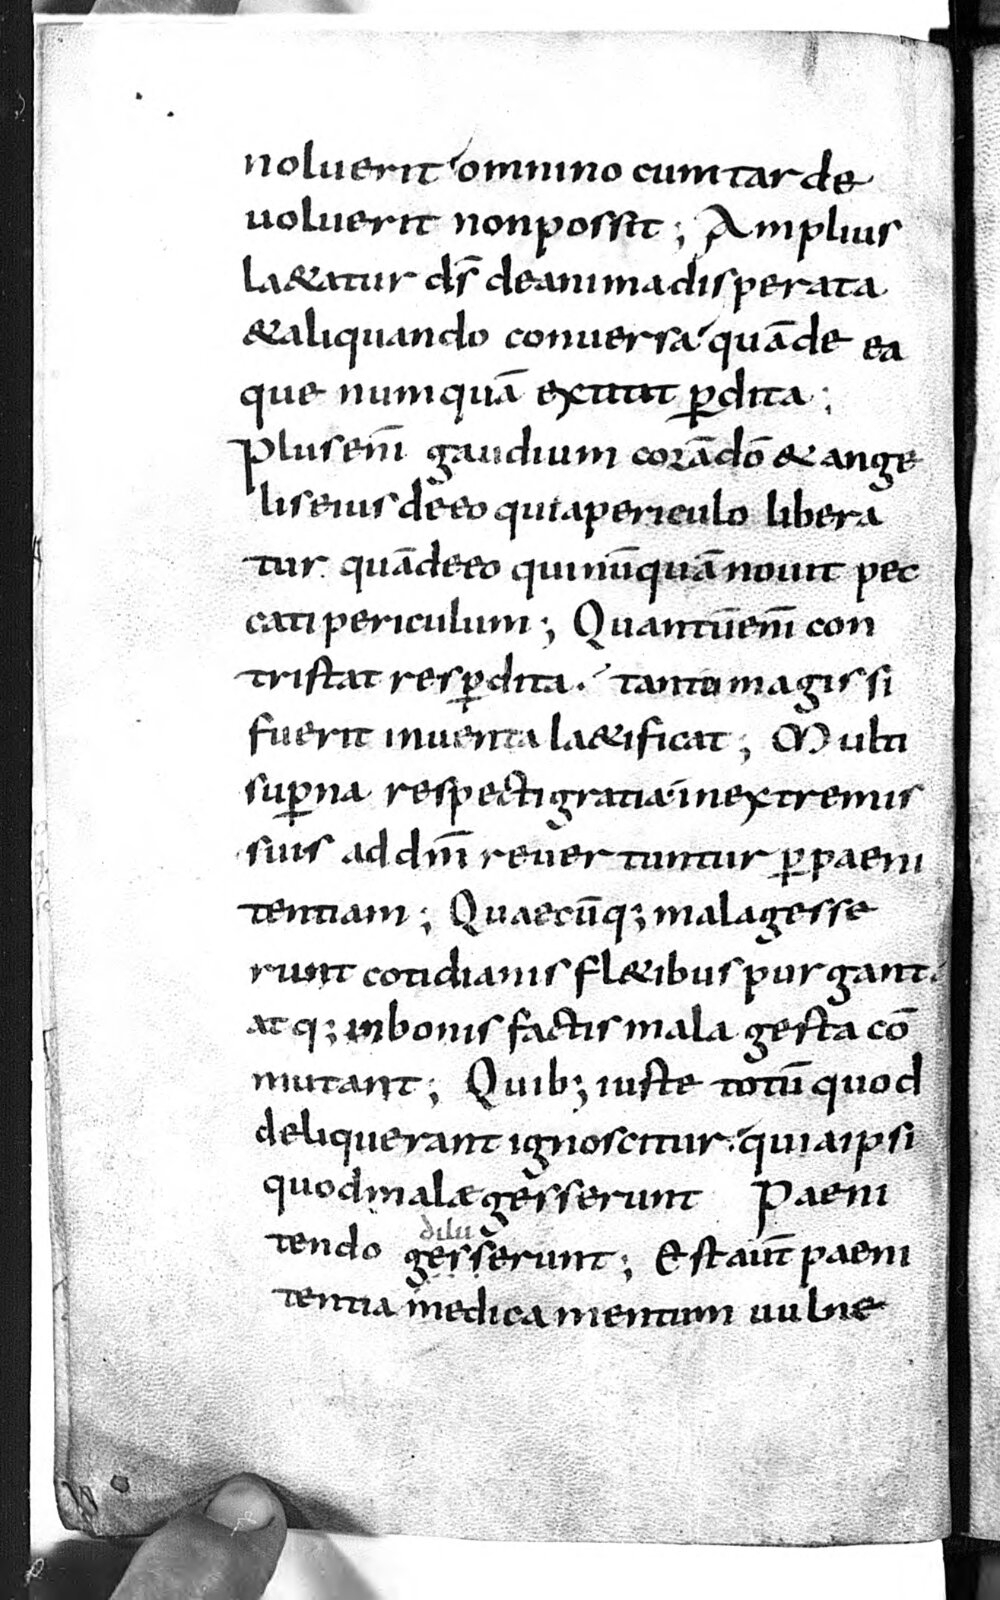 noluerit omnino cum tarde
uoluerit non possit; Amplius
la&atur ds̄ de anima disperata
& aliquando conuersa quā de ea
que numquā extitit ꝑdita;
Plus enī gaudium corā dō & ange
lis eius de eo qui a periculo libera
tur quā de eo qui nūquā nouit pec
cati periculum; Quantū enī con
tristat res ꝑdita. tanto magis si
fuerit inuenta la&ificat; Multi
suꝑna respecti gratia in extremis
suis ad dnm̄ reuertuntur ꝑ paeni
tentiam; Quaecūq; mala gesse
runt cotidianis fl&ibus purgant.
atq; in bonis factis mala gesta cō
mutant; Quib; iuste totū quod
deliquerant ignoscitur. quia ipsi
quod male gesserunt Paeni
dilu
tendo gesserunt; Est aūt paeni
tentia medicamentum uulne